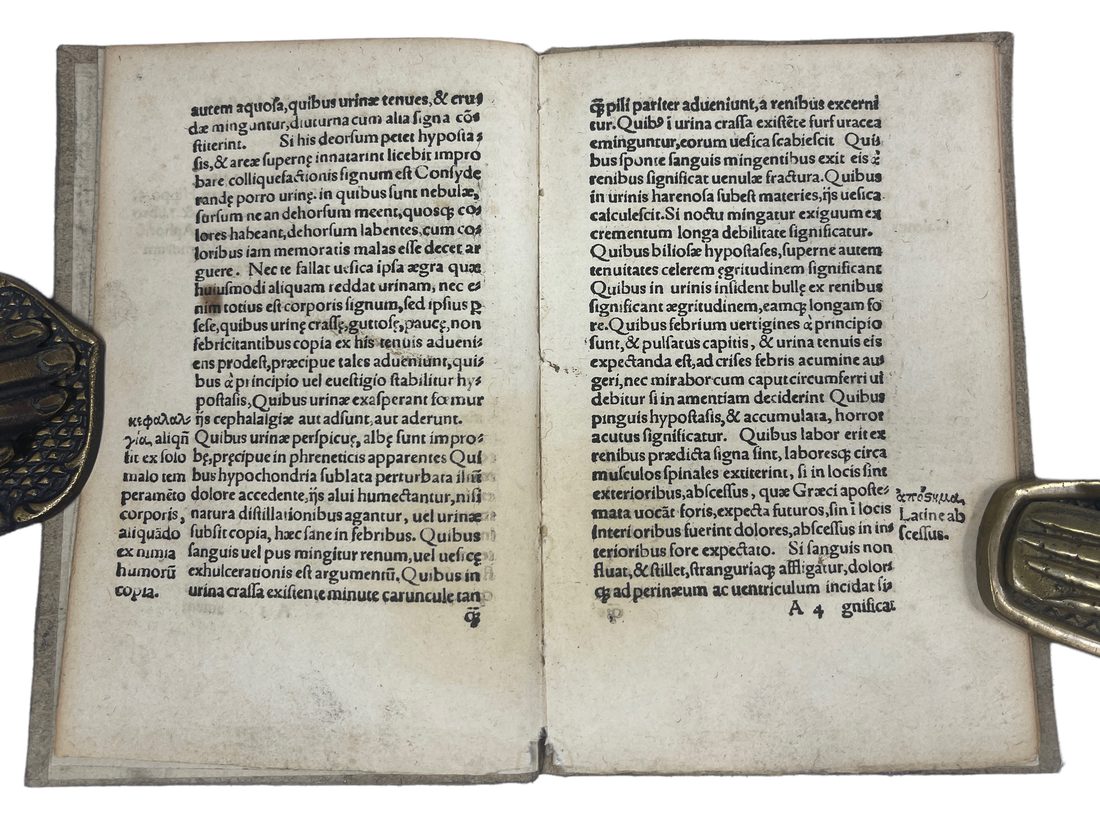 autem aquosa, quibus urinæ tenues, & cru⸗
dæ minguntur, diuturna cum alia signa cõ⸗
stiterint. Si his deorsum petet hyposta⸗
sis, & areæ supernę innatarint licebit impro
bare colliquefactionis signum est Consyde
randę porro urinę. in quibus sunt nebulæ,
sursum ne an dehorsum meent, quosq; co⸗
lores habeant, dehorsum labentes, cum co⸗
loribus iam memoratis malas esse decet ar
guere. Nec te fallat uesica ipsa ægra quæ
huiusmodi aliquam reddat urinam, nec e⸗
nim totius est corporis signum, sed ipsius ꝑ
sese, quibus urinę crassę, guttosę, paucę, non
febricitantibus copia ex his tenuis adueni⸗
ens prodest, præcipue tales adueniunt, qui⸗
bus à principio uel euestigio stabilitur hy⸗
postasis, Quibus urinæ exasperant fœmur
ijs cephalalgiæ aut adsunt, aut aderunt.
Quibus urinæ perspicuę, albę sunt impro⸗
bę, pręcipue in phreneticis apparentes Qui
bus hypochondria sublata perturbata illũt
dolore accedente, ijs alui humectantur, nisi
natura distillationibus agantur, uel urinæ
subsit copia, hæc sane in febribus. Quibus
sanguis uel pus mingitur renum, uel uesicę
exhulcerationis est argumentũ. Quibus in
urina crassa existente minutę carunculę tan
q̃;
κεφαλαλ⸗
γία, aliqñ
fit ex solo
malo tem
peramẽto
corporis,
aliquãdo
ex nimia
humorũ
copia.
q̃; pili pariter adueniunt, a renibus excerni
tur. Quibꝰ ĩ urina crassa existẽte furfuracea
eminguntur, eorum uesica scabiescit Qui⸗
bus sponte sanguis mingentibus exit eis à
renibus significat uenulæ fractura. Quibus
in urinis harenosa subest materies, ijs uesica
calculescit. Si noctu mingatur exiguum ex
crementum longa debilitate significatur.
Quibus biliosæ hypostases, superne autem
tenuitates celerem ęgritudinem significant
Quibus in urinis insident bullę ex renibus
significant ægritudinem, eamq; longam fo
re. Quibus febrium uertigines à principio
sunt, & pulsatus capitis, & urina tenuis eis
expectanda est, ad crises febris acumine au⸗
geri, nec mirabor cum caput circumferri ut
debitur si in amentiam deciderint Quibus
pinguis hypostasis, & accumulata, horror
acutus significatur. Quibus labor erit ex
renibus prædicta signa sint, laboresq; circa
musculos spinales extiterint, si in locis sint
exterioribus, abscessus, quæ Græci aposte⸗
mata uocãt foris, expecta futuros, sin ĩ locis
interioribus fuerint dolores, abscessus in in⸗
terioribus fore expectato. Si sanguis non
fluat, & stillet, stranguriaq; affligatur, dolor
q; ad perinæum ac uentriculum incidat si⸗
A 4 gnificat
ἀπόστημα,
Latine ab
scessus.